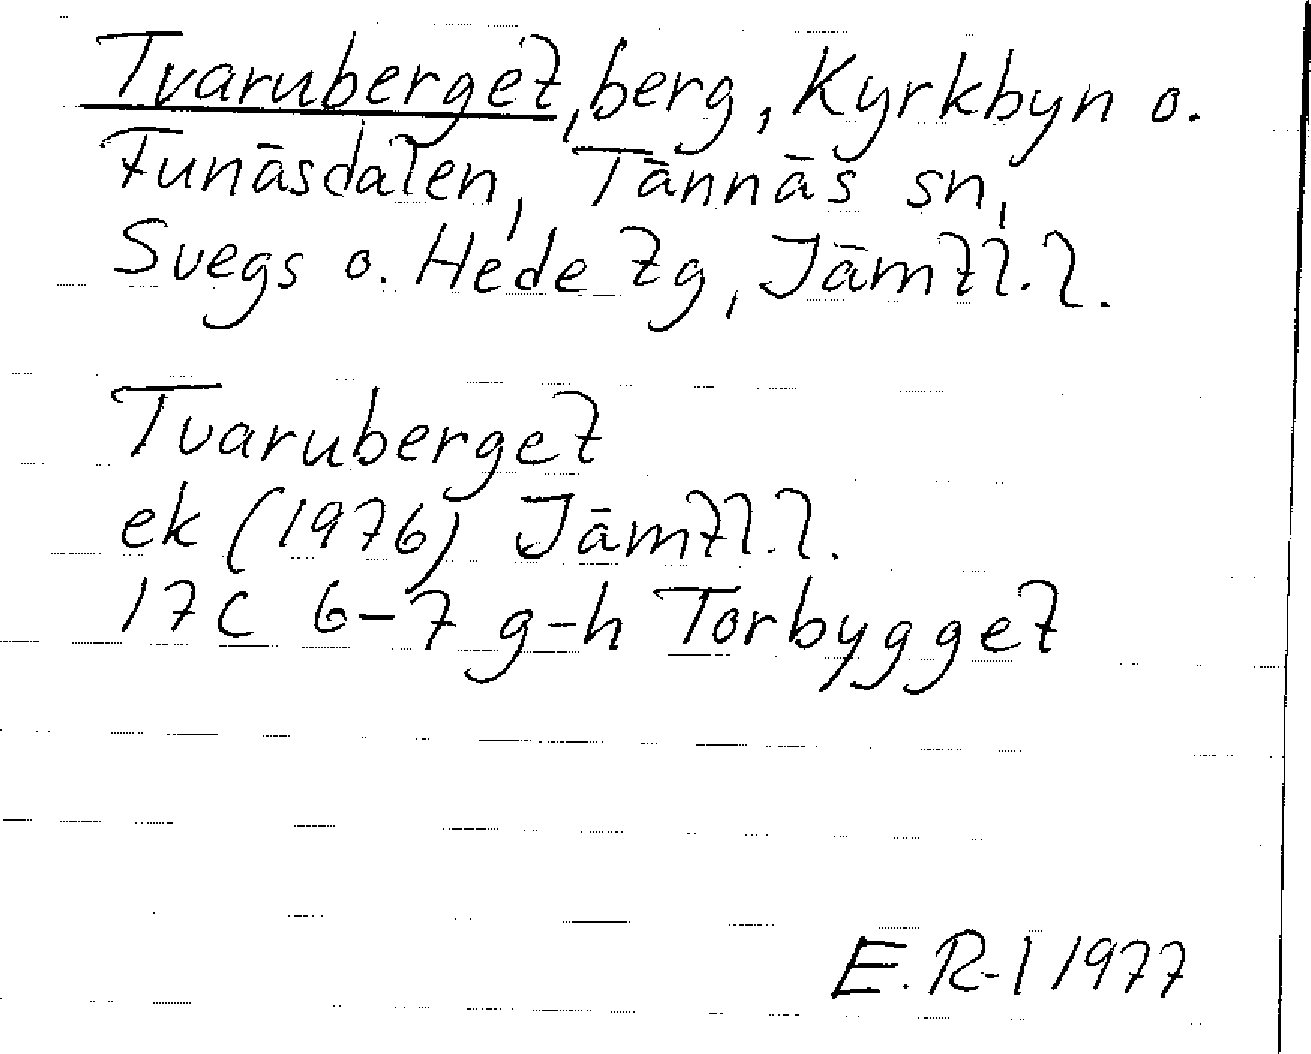 Tvaruberget, berg, Kyrkbyn o.
Funäsdalen, Tännäs sn,
Svegs o. Hede tg, Jämtl. l.
Tvaruberget
ek (1976) Jämtl. l.
17C 6-7 g-h Torbygget
E. R-l 1977